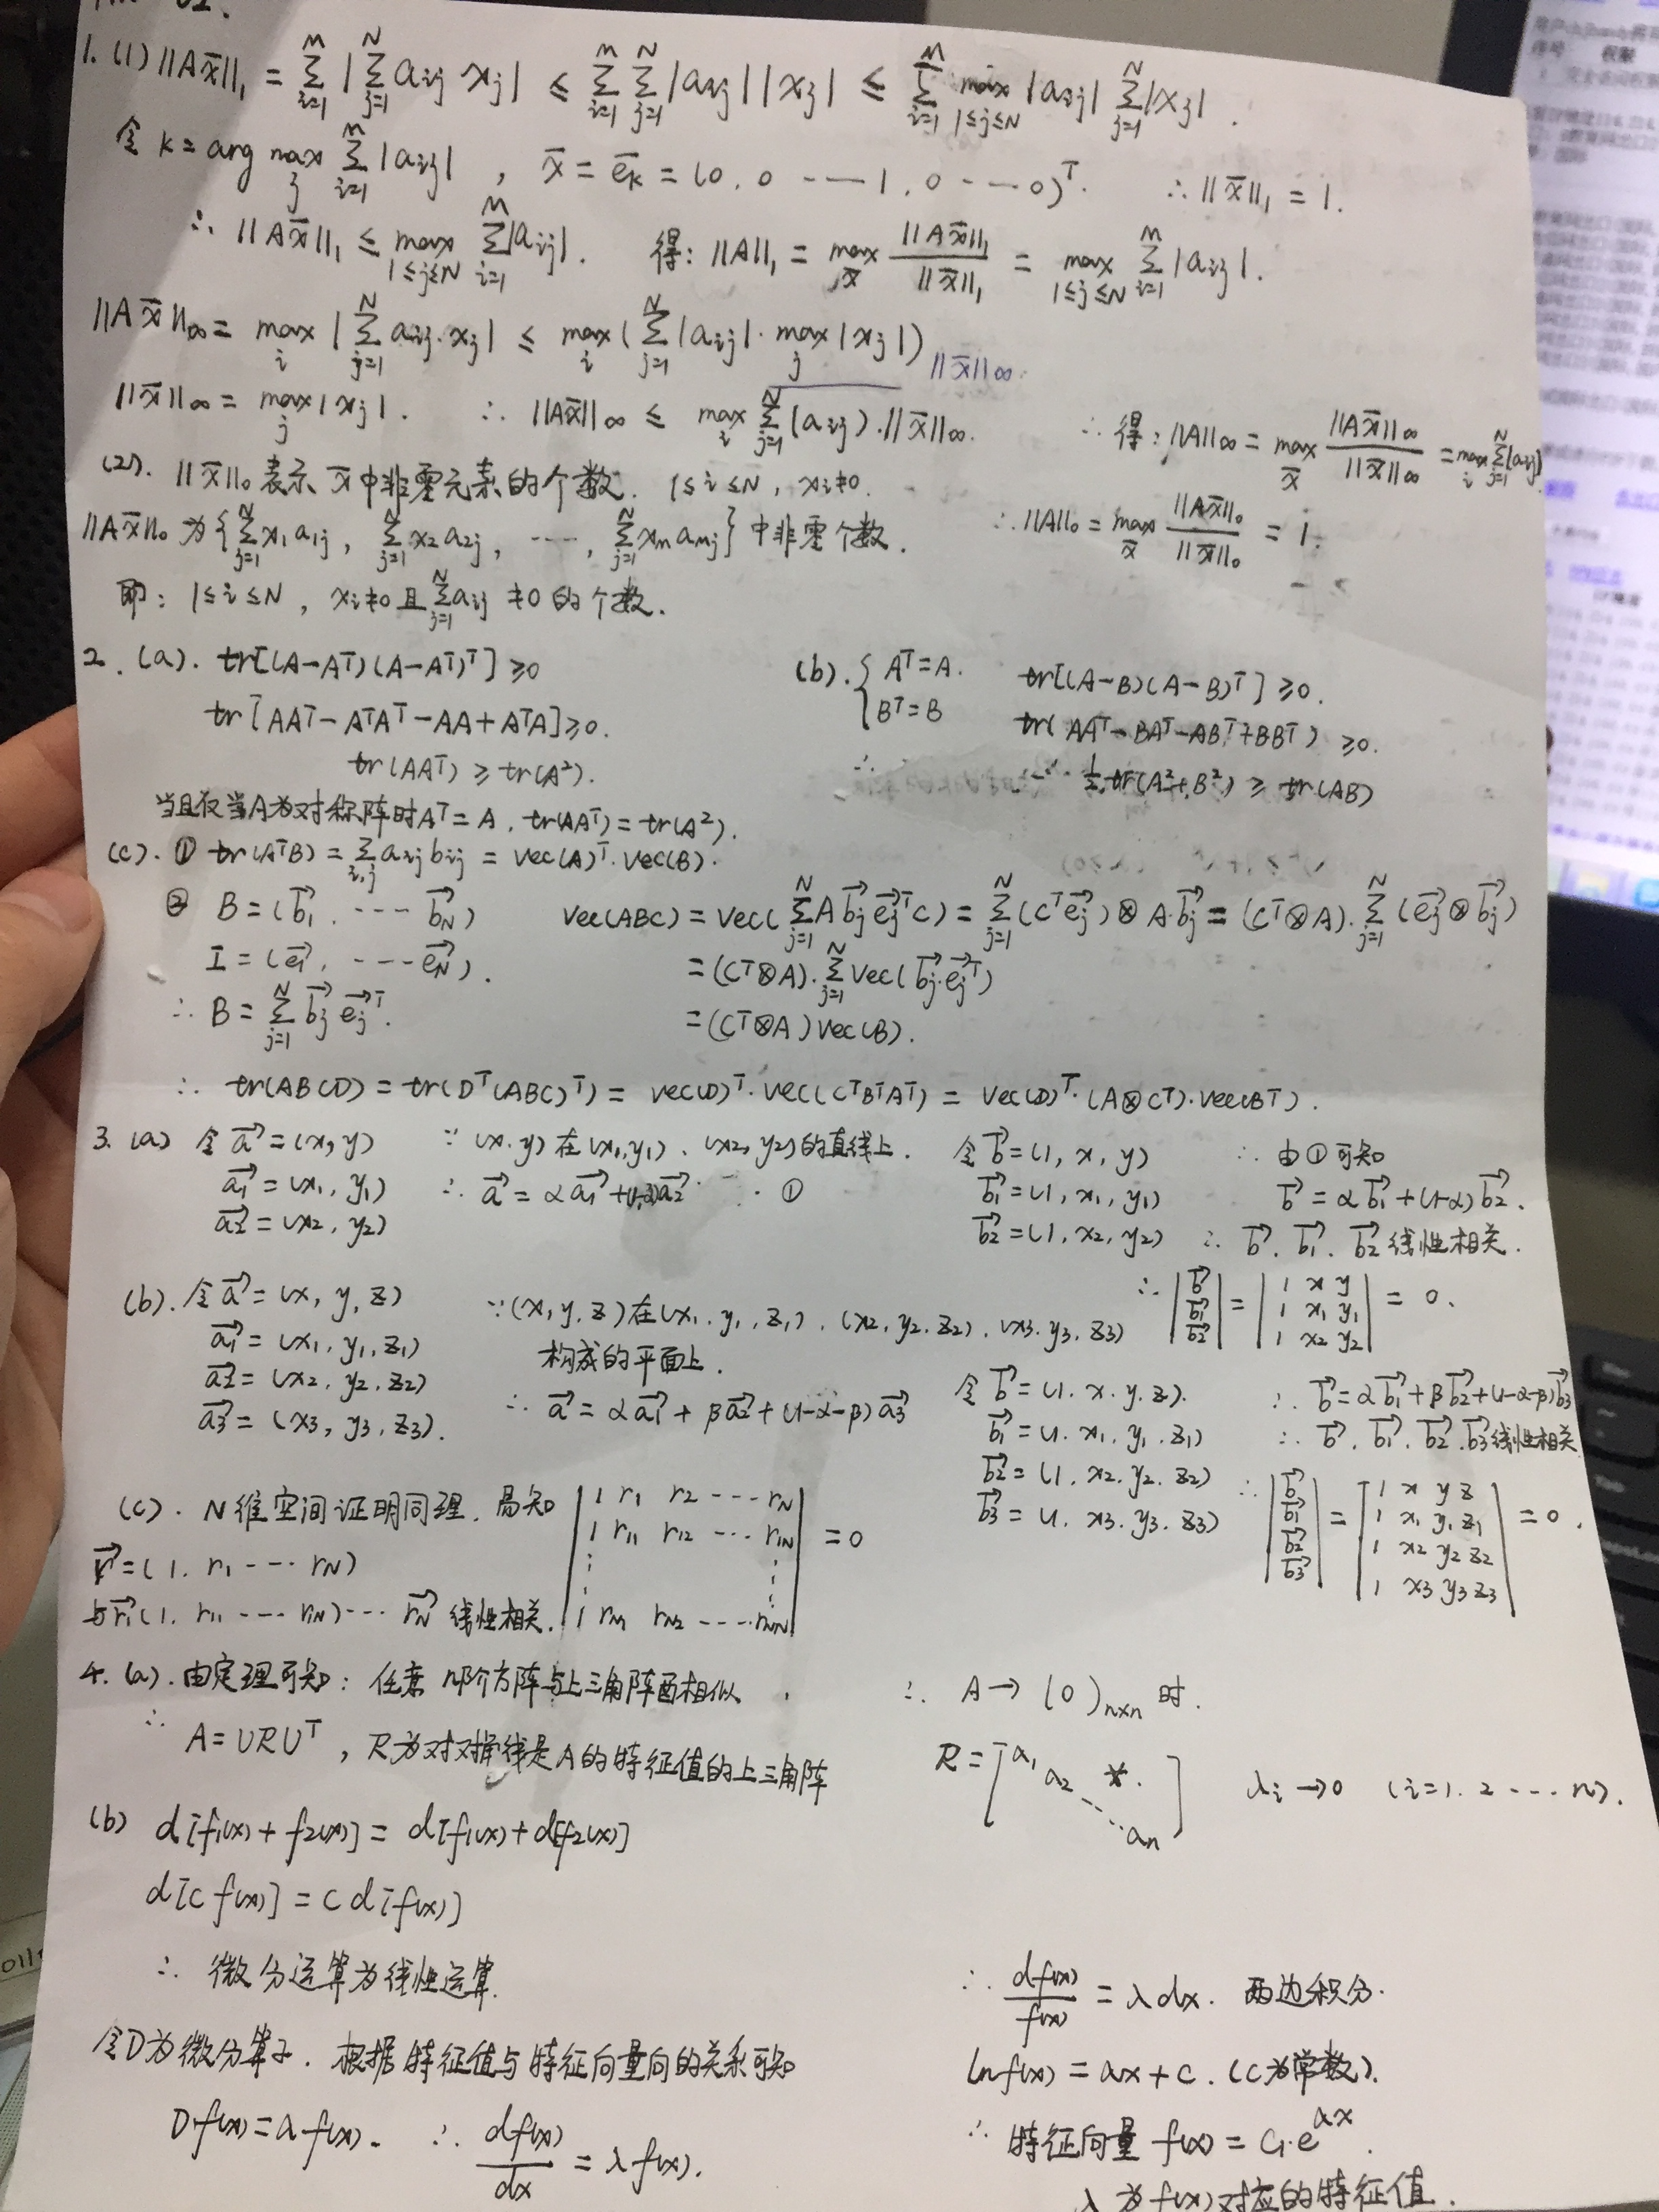 1. (1) ||Ax̄||₁ = Σ_{i=1}^{M} |Σ_{j=1}^{N} aij xj| ≤ Σ_{i=1}^{M} Σ_{j=1}^{N} |aij| |xj| ≤ Σ_{i=1}^{M} max_{1≤j≤N} |aij| Σ_{j=1}^{N} |xj|.
令 k = arg max_j Σ_{i=1}^{M} |aij| , x̄ = ēk = (0, 0 ---- 1, 0 ---- 0)ᵀ. ∴ ||x̄||₁ = 1.
∴ ||Ax̄||₁ ≤ max_{1≤j≤N} Σ_{i=1}^{M} |aij|. 得: ||A||₁ = max_x̄ ||Ax̄||₁ / ||x̄||₁ = max_{1≤j≤N} Σ_{i=1}^{M} |aij|.
||Ax̄||∞ = max_i |Σ_{j=1}^{N} aij·xj| ≤ max_i (Σ_{j=1}^{N} |aij|· max_j |xj|) ||x̄||∞.
||x̄||∞ = max_j |xj|. ∴ ||Ax̄||∞ ≤ max_i Σ_{j=1}^{N} (aij)·||x̄||∞. ∴ 得: ||A||∞ = max_x̄ ||Ax̄||∞ / ||x̄||∞ = max_i Σ_{j=1}^{N} |aij|
(2). ||x̄||₀ 表示 x̄ 中非零元素的个数. 1≤i≤N, xi≠0.
||Ax̄||₀ 为 {Σ_{j=1}^{N} x₁a₁j, Σ_{j=1}^{N} x₂a₂j, ----, Σ_{j=1}^{N} xm amj} 中非零个数. ∴ ||A||₀ = max_x̄ ||Ax̄||₀ / ||x̄||₀ = 1.
即: 1≤i≤N, xi≠0 且 Σ_{j=1}^{N} aij ≠0 的个数.
2. (a). tr[(A-Aᵀ)(A-Aᵀ)ᵀ] ≥0
tr[AAᵀ - AᵀAᵀ - AA + AᵀA] ≥0.
tr(AAᵀ) ≥ tr(A²).
当且仅当A为对称阵时Aᵀ = A, tr(AAᵀ) = tr(A²).
(b). { Aᵀ = A. tr[(A-B)(A-B)ᵀ] ≥0.
Bᵀ = B tr(AAᵀ - BAᵀ - ABᵀ + BBᵀ) ≥0.
∴ ½tr(A²+B²) ≥ tr(AB)
(c). ① tr(AᵀB) = Σ_{i,j} aij bij = vec(A)ᵀ·vec(B).
② B = (b₁⃗, ---- bN⃗) vec(ABC) = vec(Σ_{j=1}^{N} A bj⃗ ej⃗ᵀ C) = Σ_{j=1}^{N} (Cᵀej⃗) ⊗ A·bj⃗ = (Cᵀ⊗A)·Σ_{j=1}^{N} (ej⃗ ⊗ bj⃗)
I = (e₁⃗, ---- eN⃗). = (Cᵀ⊗A)·Σ_{j=1}^{N} vec(bj⃗·ej⃗ᵀ)
∴ B = Σ_{j=1}^{N} bj⃗ ej⃗ᵀ. = (Cᵀ⊗A)vec(B).
∴ tr(ABCD) = tr(Dᵀ(ABC)ᵀ) = vec(D)ᵀ·vec(CᵀBᵀAᵀ) = vec(D)ᵀ·(A⊗Cᵀ)·vec(Bᵀ).
3. (a) 令 a⃗ = (x, y) ∵ (x, y) 在 (x₁, y₁)、(x₂, y₂) 的直线上.
a₁⃗ = (x₁, y₁) ∴ a⃗ = αa₁⃗ + (1-α)a₂⃗ ··· ①
a₂⃗ = (x₂, y₂)
令 b⃗ = (1, x, y) ∴ 由①可知
b₁⃗ = (1, x₁, y₁) b⃗ = αb₁⃗ + (1-α)b₂⃗.
b₂⃗ = (1, x₂, y₂) ∴ b⃗. b₁⃗. b₂⃗ 线性相关.
∴ |b⃗ b₁⃗ b₂⃗| = |1 x y; 1 x₁ y₁; 1 x₂ y₂| = 0.
(b). 令 a⃗ = (x, y, z) ∵ (x, y, z) 在 (x₁, y₁, z₁), (x₂, y₂, z₂), (x₃, y₃, z₃)
a₁⃗ = (x₁, y₁, z₁) 构成的平面上.
a₂⃗ = (x₂, y₂, z₂) ∴ a⃗ = αa₁⃗ + βa₂⃗ + (1-α-β)a₃⃗
a₃⃗ = (x₃, y₃, z₃).
令 b⃗ = (1, x, y, z). ∴ b⃗ = αb₁⃗ + βb₂⃗ + (1-α-β)b₃⃗
b₁⃗ = (1, x₁, y₁, z₁) ∴ b⃗, b₁⃗, b₂⃗, b₃⃗ 线性相关
b₂⃗ = (1, x₂, y₂, z₂)
b₃⃗ = (1, x₃, y₃, z₃)
∴ |b⃗ b₁⃗ b₂⃗ b₃⃗| = |1 x y z; 1 x₁ y₁ z₁; 1 x₂ y₂ z₂; 1 x₃ y₃ z₃| = 0.
(c). N维空间证明同理. 易知 |1 r₁ r₂ ---- rN; 1 r₁₁ r₁₂ ---- r₁N; ⋮ ⋮; 1 rN₁ rN₂ ---- rNN| = 0
r⃗ = (1, r₁ ---- rN)
与r₁⃗(1, r₁₁ ---- r₁N) ---- rN⃗ 线性相关.
4. (a). 由定理可知: 任意 n阶个方阵与上三角阵酉相似
∴ A = URUᵀ, R为对对角线是A的特征值的上三角阵
∴ A → (0)n×n 时.
R = [a₁ a₂ * ---- an] λi → 0 (i=1, 2 ---- n).
(b) d[f₁(x) + f₂(x)] = d[f₁(x) + d[f₂(x)]
d[c f(x)] = c d[f(x)]
∴ 微分运算为线性运算.
令D为微分算子. 根据特征值与特征向量向的关系可知
D·f(x) = a f(x). ∴ df(x)/dx = λ f(x).
∴ df(x)/f(x) = λ dx. 两边积分.
ln f(x) = ax + c. (c为常数).
∴ 特征向量 f(x) = c₁·e^{ax}.
λ 为 f(x) 对应的特征值.